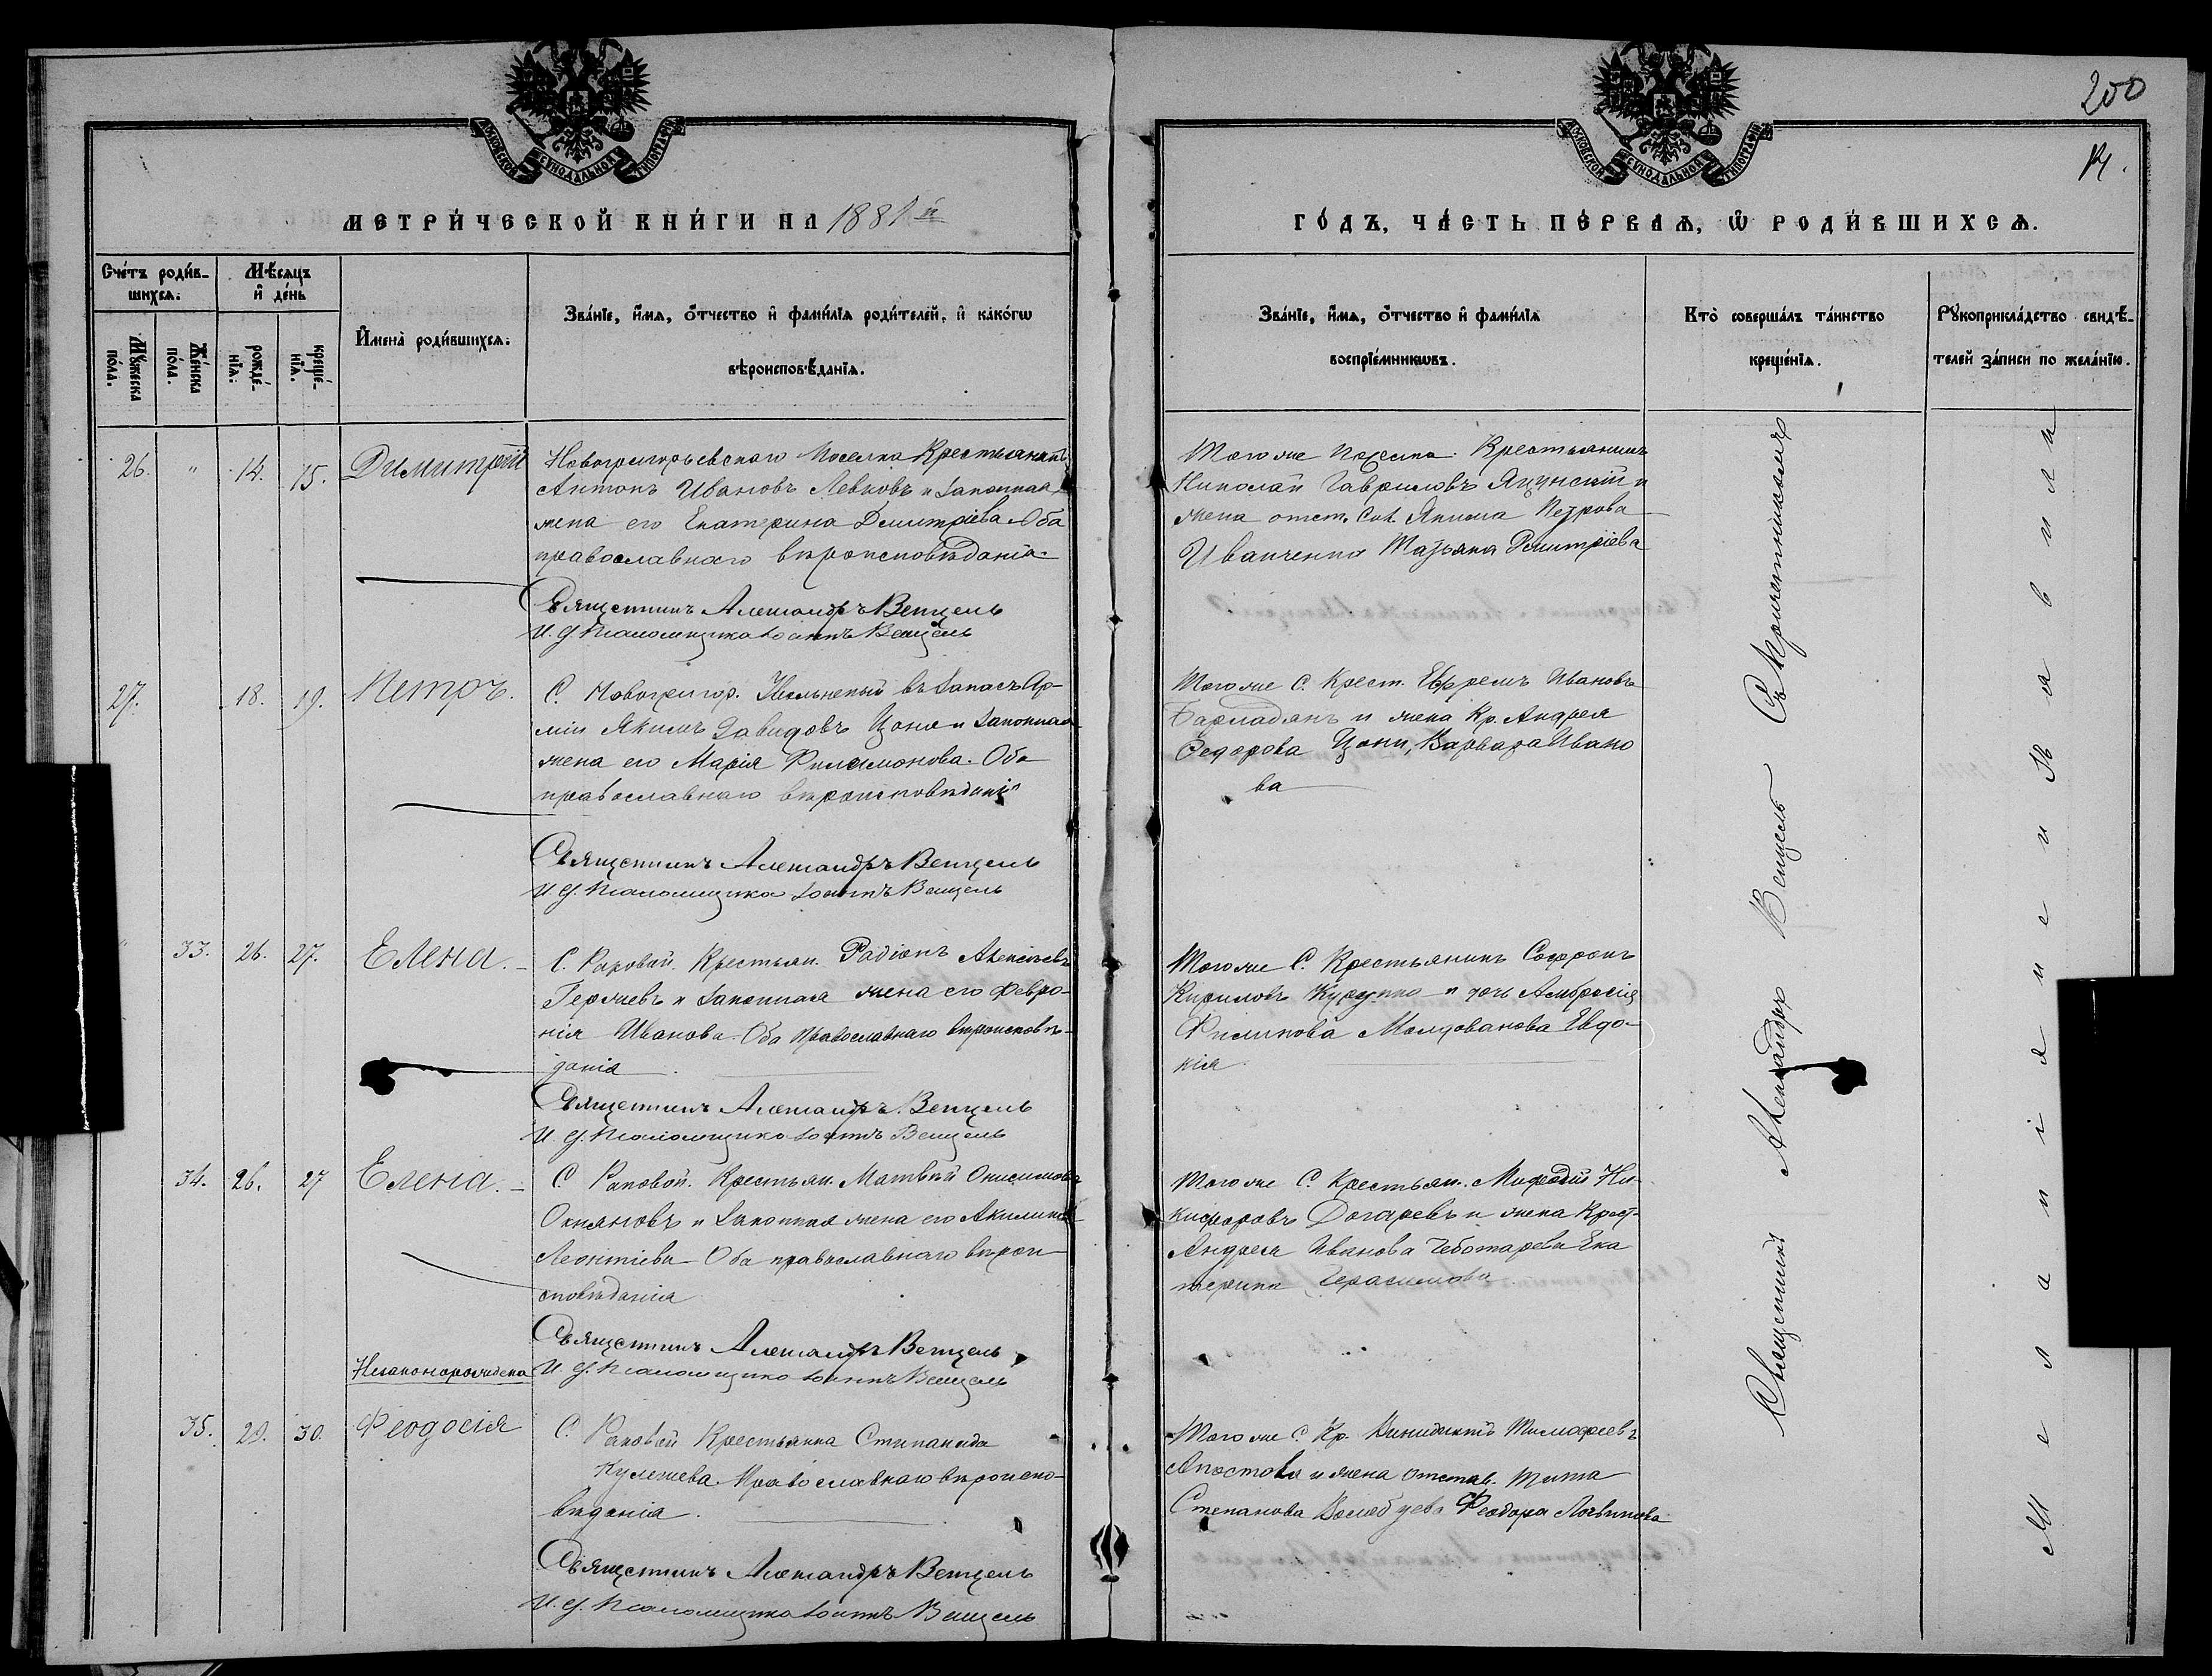 200
14.
МОСКОВСКОЙ СѴНОДАЛЬНОЙ ТИПОГРАФІИ
МОСКОВСКОЙ СѴНОДАЛЬНОЙ ТИПОГРАФІИ
МЕТРИ́ЧЕСКОЙ КНИ́ГИ НА 1881й
ГО́ДЪ, ЧА́СТЬ ПЕ́РВАѦ, Ѿ РОДИ́ВШИХСѦ.
Сче́тъ роди́в-
шихсѧ:
Мꙋ́жеска по́ла.
Же́нска по́ла.
Мѣ́сѧцъ
и҆ де́нь
рожде́-
нїѧ:
креще́-
нїѧ.
И҆мена̀ роди́вшихсѧ:
Зва́нїе, и҆́мѧ, ѻ҆́тчество и҆ фами́лїѧ роди́телей, и҆ како́гѡ
вѣроисповѣ́данїѧ.
Зва́нїе, и҆́мѧ, ѻ҆́тчество и҆ фами́лїѧ
воспрїе́мникѡвъ.
Кто̀ соверша́лъ та́инство
креще́нїѧ.
Рꙋкоприкла́дство свидѣ́-
телей за́писи по жела́нїю.
26. " 14. 15. Димитрій
Новогригорьевскаго Поселка Крестьянинъ
Антонъ Ивановъ Левковъ и законная
жена его Екатерина Дмитріева Оба
православнаго вѣроисповѣданія.
Священникъ Александръ Венцель
И. д. Псаломщика Іоаннъ Венцель
Того же Поселка Крестьянинъ
Николай Гавриловъ Яцунскій и
жена отст. Сол. Якима Петрова
Иванченко Татьяна Дмитріева
27. 18. 19. Петръ.
С. Новогригор. Увольненый въ Запасъ Ар-
міи Якимъ Давидовъ Цона и Законная
жена его Марія Филимонова. Оба
православнаго вѣроисповѣданія
Священникъ Александръ Венцель
И. д. Псаломщика Іоаннъ Венцель
Того же С. Крест. Ефремъ Ивановъ
Барладянъ и жена Кр. Андрея
Федорова Цоны, Варвара Ивано
ва
" 33. 26. 27. Елена.
С. Раковой. Крестьян. Радіонъ Алексѣевъ
Гержевъ и Законная жена его Февро-
нія Иванова. Оба Православнаго вѣроисповѣ-
данія
Священникъ Александръ Венцель
И. д. Псаломщика Іоаннъ Венцель
Того же С. Крестьянинъ Софронъ
Кириловъ и дочь Амвросія
Филипова Молдованова Евдо-
кія
34. 26. 27 Елена.
С. Раковой. Крестьян. Матвѣй Онисимовъ
Окняновъ и Законная жена его Акилина
Леонтіева Оба православнаго вѣрои
сповѣданія
Священникъ Александръ Венцель
И. д. Псаломщика Іоаннъ Венцель
Того же С. Крестьян. Мифодій Ни-
кифоровъ Догаревъ и жена Крест-
Андрея Иванова Чеботарева Ека
терина Герасимова
Незаконорождена
35. 29. 30. Феодосія
С. Раковой Крестьянка Стипанида
Кулешева Православнаго вѣроиспо-
вѣданія.
Священникъ Александръ Венцель
И. д. Псаломщика Іоаннъ Венцель
Того же С. Кр. Винидиктъ Тимофеевъ
Апостолъ и жена отстав. Тита
Степанова Феодора Логвинова
Священникъ Александръ Венцель Съ Причетникомъ
Желанія не изъявили